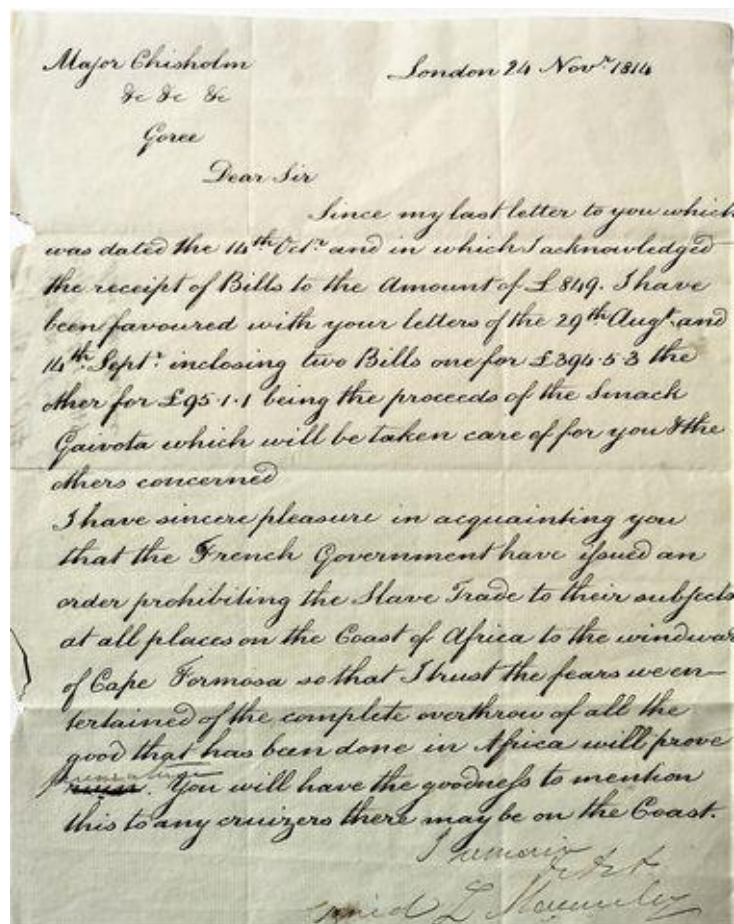 Major Chisholm
&c &c &c
London 24 Novr. 1814
Goree
Dear Sir
Since my last letter to you which
was dated the 14th Octr. and in which I acknowledged
the receipt of Bills to the Amount of £849. I have
been favoured with your letters of the 29th Augt. and
14th Septr. inclosing two Bills one for £394.5.3 the
other for £95.1.1 being the proceeds of the Smack
Gaivota which will be taken care of for you & the
others concerned
I have sincere pleasure in acquainting you
that the French Government have issued an
order prohibiting the Slave Trade to their subjects
at all places on the Coast of Africa to the windwar
of Cape Formosa so that I trust the fears we en-
tertained of the complete overthrow of all the
good that has been done in Africa will prove
. You will have the goodness to mention
this to any cruizers there may be on the Coast.
I remain
&c &c &
Z Macaulay